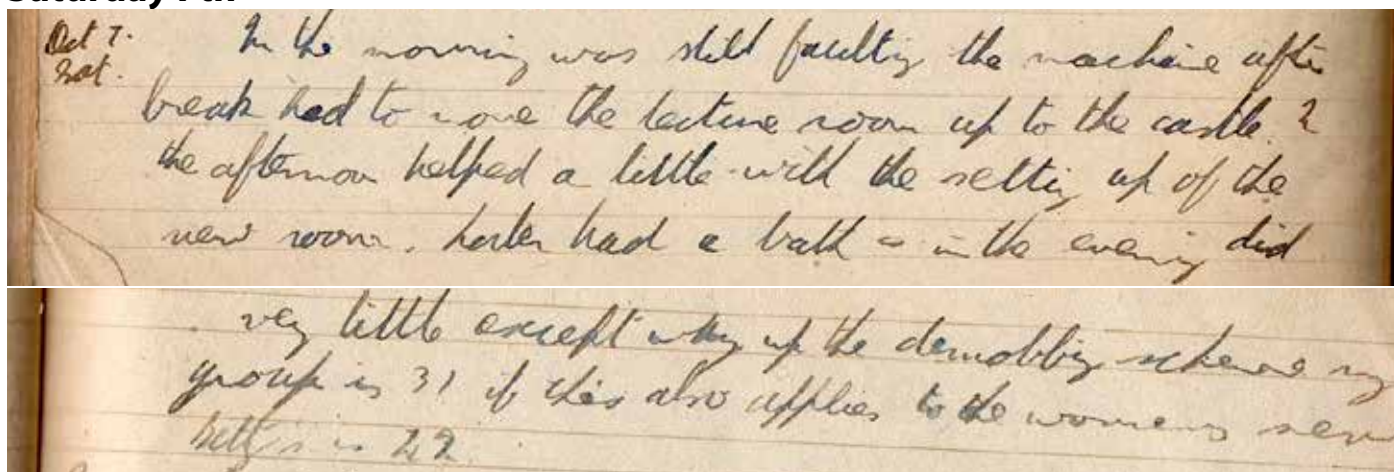 Saturday 7th
Oct 7. In the morning was still faulting the machine after
Sat. break had to move the lecture room up to the castle. In
the afternoon helped a little with the setting up of the
new room. Later had a bath & in the evening did
very little except up the demobbing scheme my
group is 31 if this also applies to the womens
Betty's is 22.